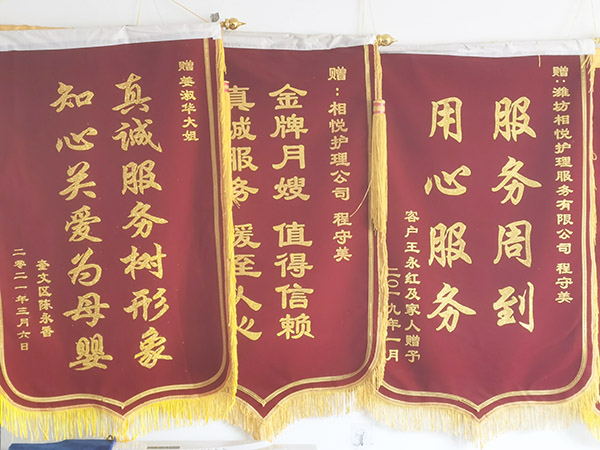 赠姜淑华大姐
真诚服务树形象
知心关爱为母婴
奎文区陈永香
二零二一年三月六日
赠：相悦护理公司 程守美
金牌月嫂 值得信赖
真诚服务 暖至人心
赠:潍坊相悦护理服务有限公司 程守美
服务周到
用心服务
客户王永红及家人赠予
二〇一九年一月